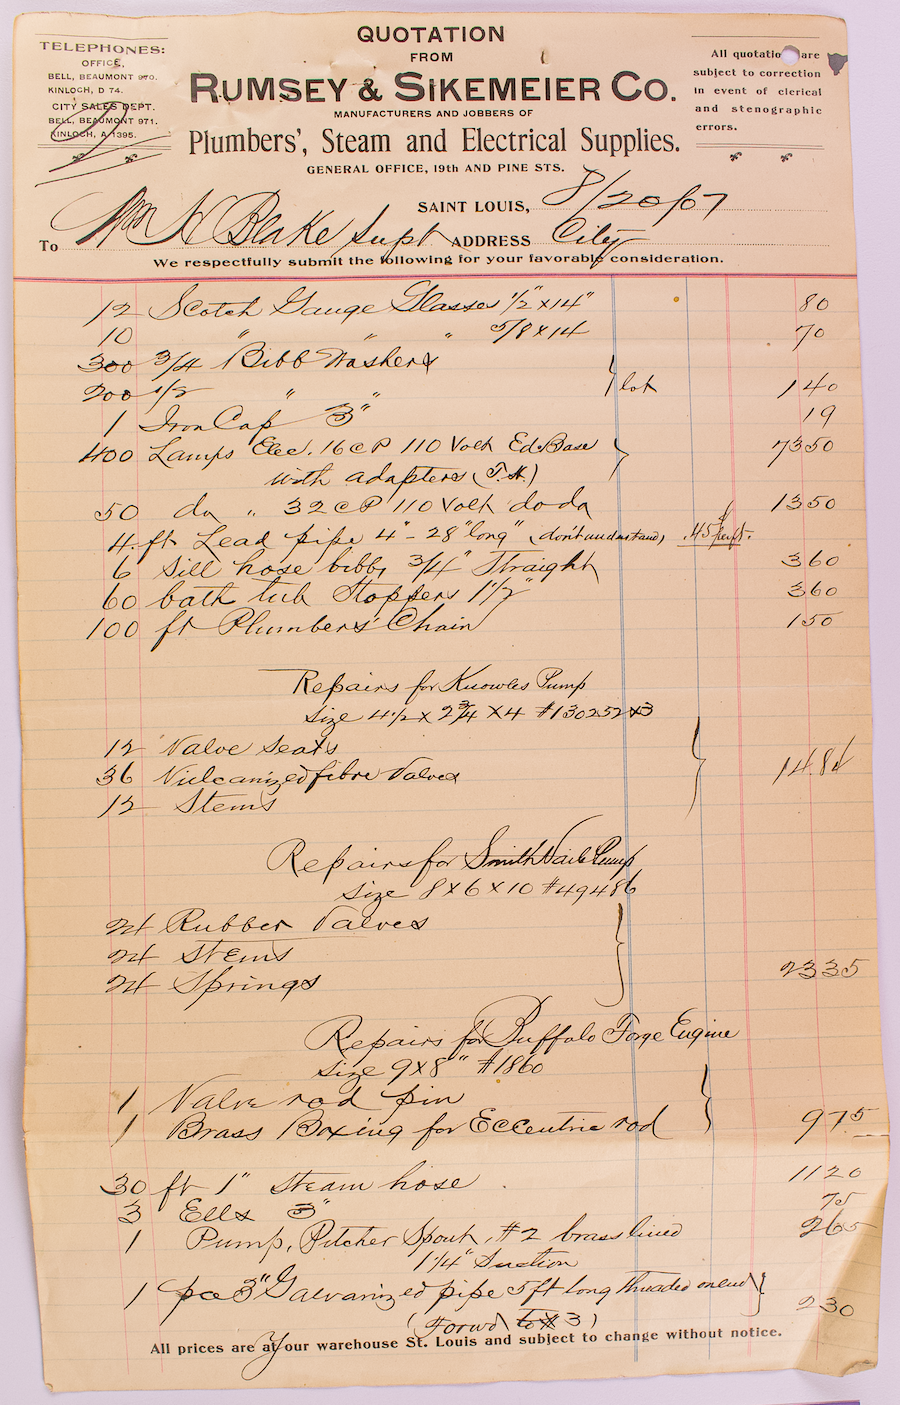 TELEPHONES:
OFFICE,
BELL, BEAUMONT 970.
KINLOCH, D 74.
CITY SALES DEPT.
BELL, BEAUMONT 971.
KINLOCH, A 1395.
QUOTATION
FROM
RUMSEY & SIKEMEIER CO.
MANUFACTURERS AND JOBBERS OF
Plumbers', Steam and Electrical Supplies.
GENERAL OFFICE, 19th AND PINE STS.
All quotations are
subject to correction
in event of clerical
and stenographic
errors.
SAINT LOUIS, 8/20/07
To Wm H Blake Supt ADDRESS City
We respectfully submit the following for your favorable consideration.
12 Scotch Gauge Glasses 1/2" x 14" 80
10 " " " 5/8 x 14 70
300 3/4 " Bibb Washers
200 1/2 " } lot 140
1 Iron Cap 3" 19
400 Lamps Elec. 16 CP 110 Volt Ed. Base } 7350
with adapters (T.H.)
50 do " 32 CP 110 Volt do do 1350
4 ft Lead pipe 4" - 28" long" (don't understand) .45 per ft.
6 Sill hose bibbs 3/4" Straight 360
60 bath tub Stoppers 1 1/2" 360
100 ft Plumbers' Chain 150
Repairs for Knowles Pump
Size 4 1/2 x 2 3/4 x 4 #130252
12 Valve seats
36 Vulcanized fibre Valves 14.84
12 Stems
Repairs for Smith Vaile Pump
Size 8 x 6 x 10 #49486
24 Rubber Valves
24 Stems
24 Springs 2335
Repairs for Buffalo Forge Engine
Size 9 x 8" #1860
1 Valve rod pin
1 Brass Boxing for Eccentric rod 975
30 ft 1" Steam hose 1120
3 Ells 3" 75
1 Pump, Pitcher Spout, #2 brass lined 265
1 1/4" Suction
1 pce 3" Galvanized pipe 5 ft long threaded on end } 230
(Forwd to # 3)
All prices are at our warehouse St. Louis and subject to change without notice.